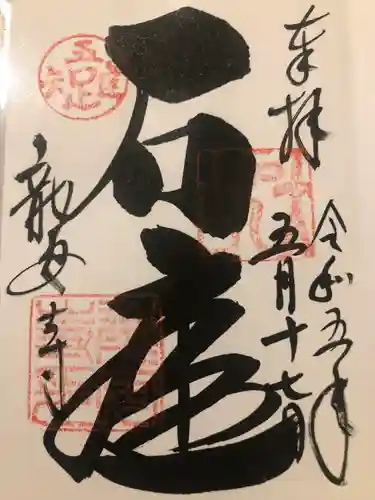 奉拝
令和五年
五月十七日
石庭
龍安寺